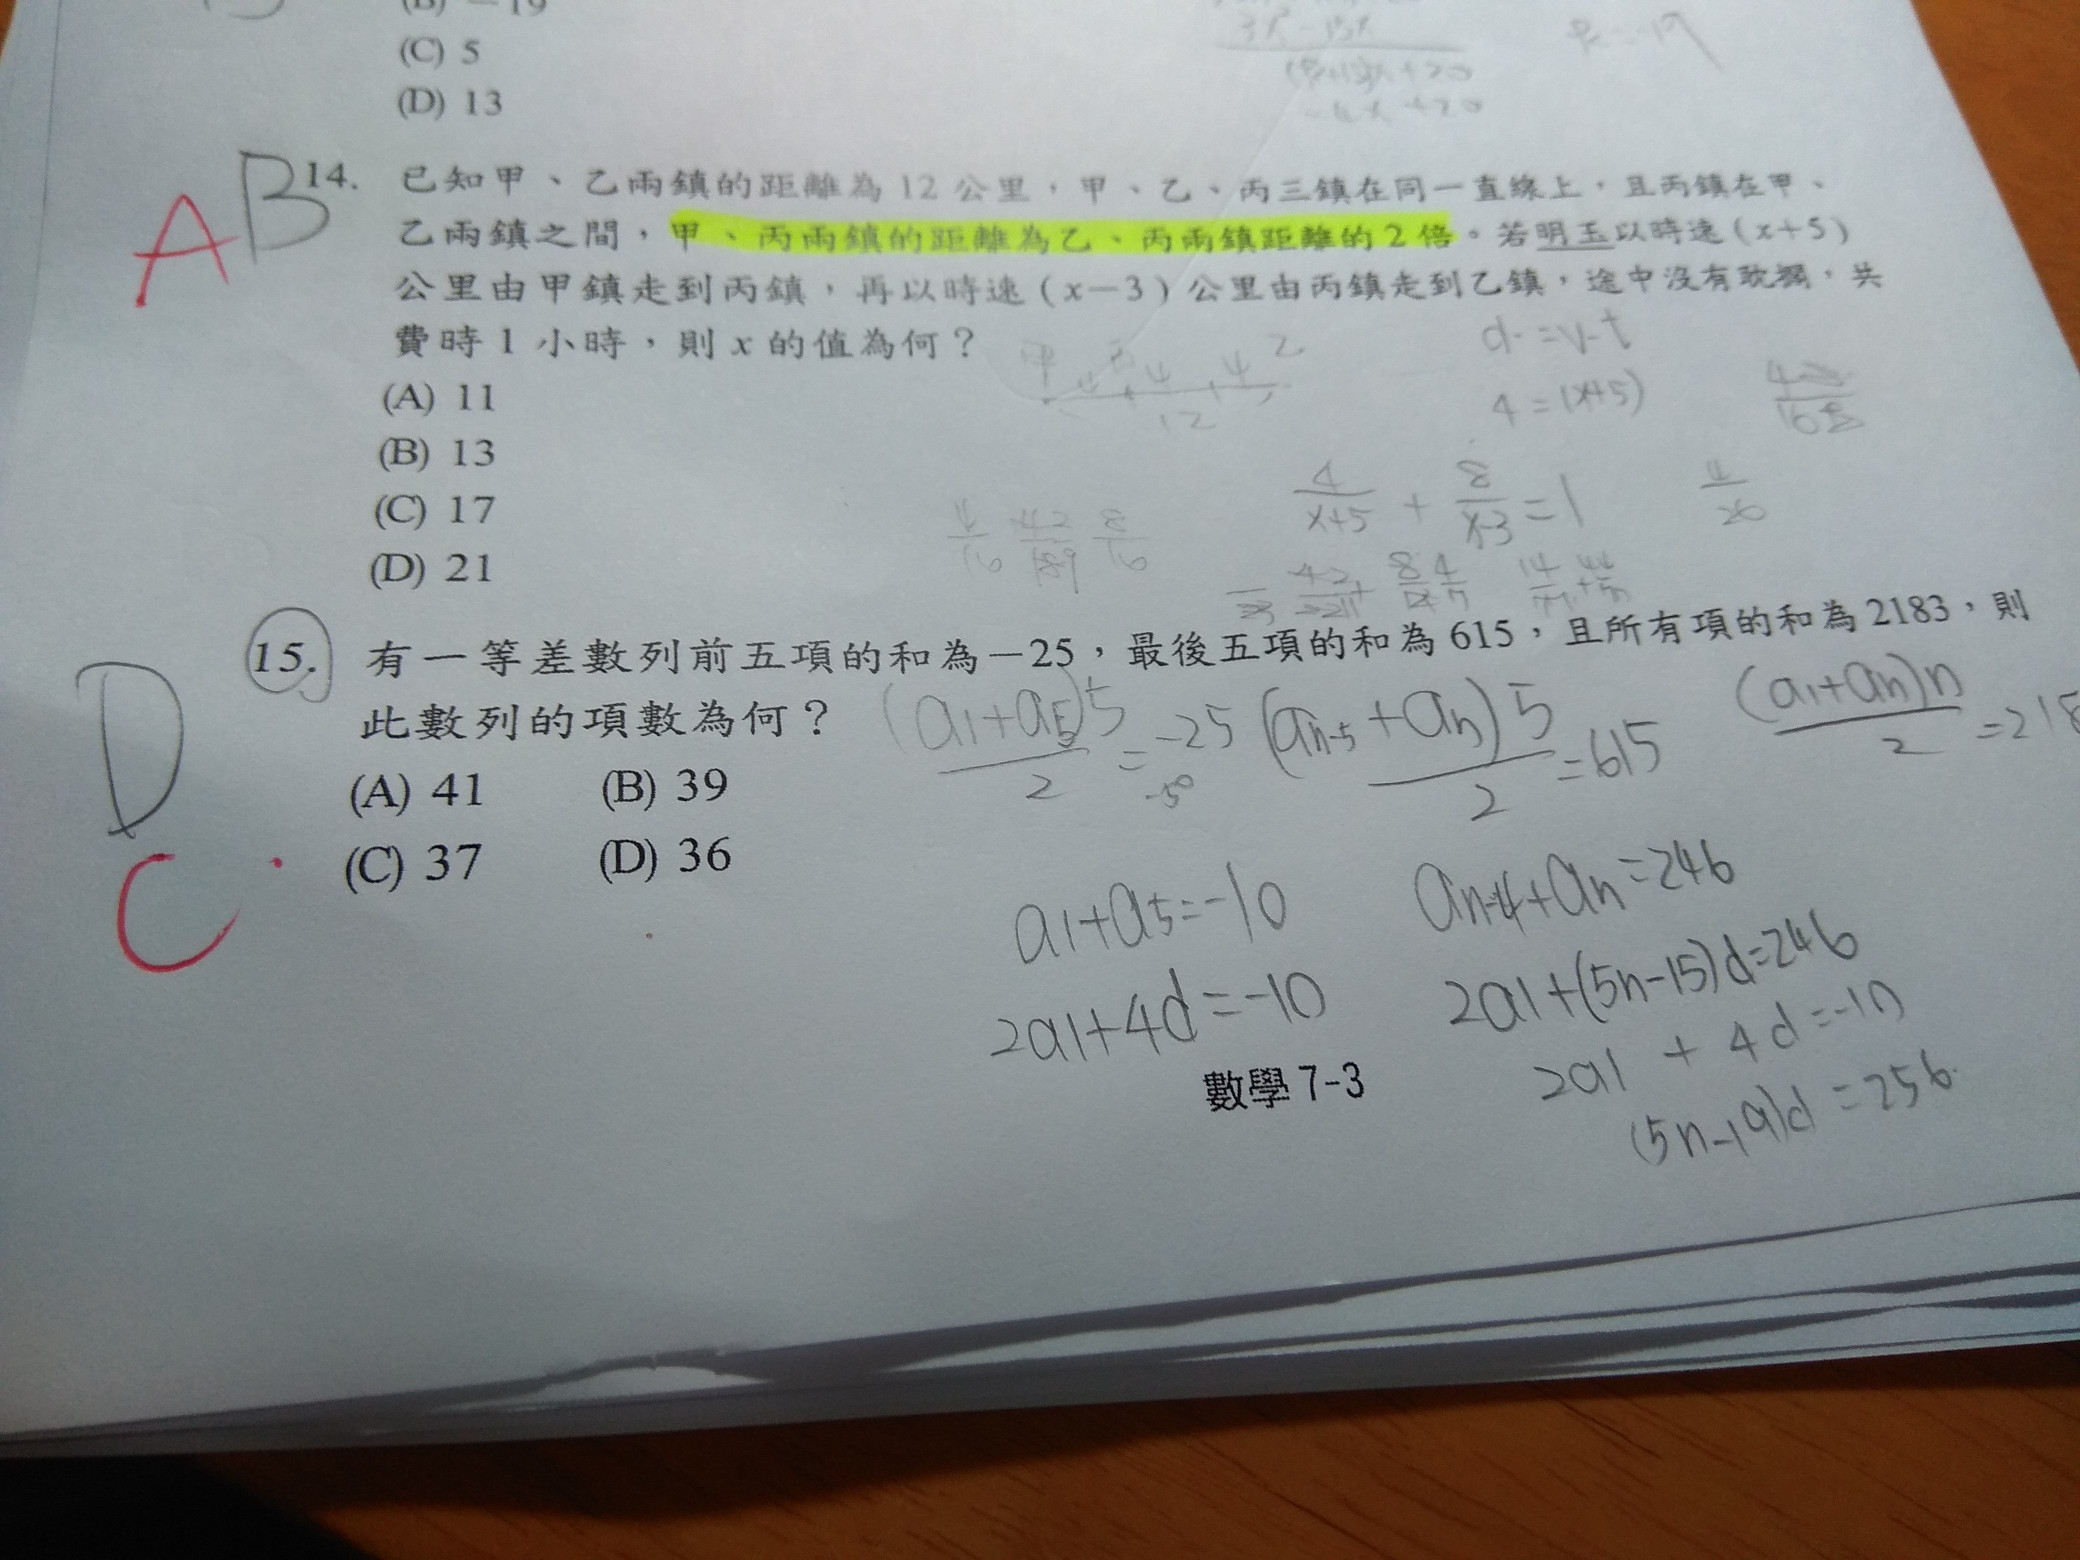 (B) −19
(C) 5
(D) 13
3x² − 15x
+20
+20
A B 14. 已知甲、乙兩鎮的距離為 12 公里，甲、乙、丙三鎮在同一直線上，且丙鎮在甲、
乙兩鎮之間，甲、丙兩鎮的距離為乙、丙兩鎮距離的 2 倍。若明玉以時速 (x+5)
公里由甲鎮走到丙鎮，再以時速 (x−3) 公里由丙鎮走到乙鎮，途中沒有耽擱，共
費時 1 小時，則 x 的值為何？
d=v·t
甲 丙 4 4 乙
12
4=(x+5)
(A) 11
(B) 13
(C) 17
(D) 21
4/(x+5) + 8/(x-3) = 1
4/20
4/16 8/16
15. 有一等差數列前五項的和為−25，最後五項的和為 615，且所有項的和為 2183，則
此數列的項數為何？
(A) 41 (B) 39
(C) 37 (D) 36
D
C
(a1+a5)5/2 = -25
-50
(an-5+an)5/2 = 615
(a1+an)n/2 = 218
a1+a5=-10
an-4+an=246
2a1+4d=-10
2a1+(5n-15)d=246
2a1 + 4d=-10
(5n-19)d=256
數學 7-3